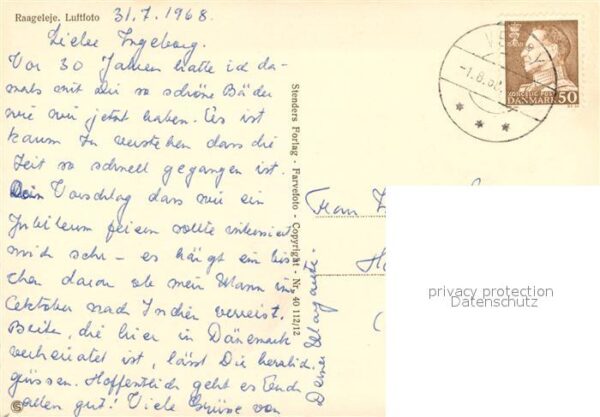 Raageleje. Luftfoto
31.7.1968.
Liebe Ingeborg.
Vor 30 Jahren hatte ich da-
mals mit dir so schöne Bäder
wie wir jetzt haben. Es ist
kaum zu verstehen dass die
Zeit so schnell gegangen ist.
Dein Vorschlag dass wir ein
Jubileum feiern sollte interessiert
mich sehr - es hängt ein bis
chen daran ob mein Mann im
Oktober nach Indien verreist.
die hier in Dänemark
verheiratet ist, lässt Die herzlich
grüssen. Hoffentlich geht es Euch
allen gut! Viele Grüsse von
Deiner
Stenders Forlag - Farvefoto - Copyright - Nr. 40 112/12
-1.8.68.
KONGELIG POST
DANMARK 50
Frau
privacy protection
Datenschutz